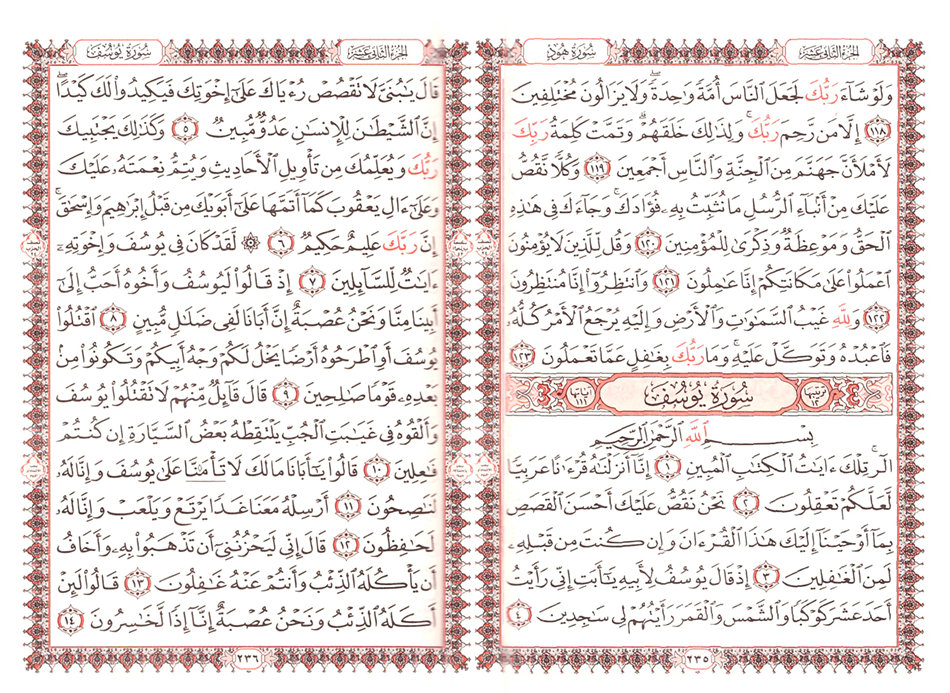 الجزء الثاني عشر
سورة هود
وَلَوْ شَآءَ رَبُّكَ لَجَعَلَ ٱلنَّاسَ أُمَّةً وَٰحِدَةً ۖ وَلَا يَزَالُونَ مُخْتَلِفِينَ
١١٨ إِلَّا مَن رَّحِمَ رَبُّكَ ۚ وَلِذَٰلِكَ خَلَقَهُمْ ۗ وَتَمَّتْ كَلِمَةُ رَبِّكَ
لَأَمْلَأَنَّ جَهَنَّمَ مِنَ ٱلْجِنَّةِ وَٱلنَّاسِ أَجْمَعِينَ ١١٩ وَكُلًّا نَّقُصُّ
عَلَيْكَ مِنْ أَنۢبَآءِ ٱلرُّسُلِ مَا نُثَبِّتُ بِهِۦ فُؤَادَكَ ۚ وَجَآءَكَ فِى هَٰذِهِ
ٱلْحَقُّ وَمَوْعِظَةٌ وَذِكْرَىٰ لِلْمُؤْمِنِينَ ١٢٠ وَقُل لِّلَّذِينَ لَا يُؤْمِنُونَ
ٱعْمَلُوا۟ عَلَىٰ مَكَانَتِكُمْ إِنَّا عَٰمِلُونَ ١٢١ وَٱنتَظِرُوٓا۟ إِنَّا مُنتَظِرُونَ
١٢٢ وَلِلَّهِ غَيْبُ ٱلسَّمَٰوَٰتِ وَٱلْأَرْضِ وَإِلَيْهِ يُرْجَعُ ٱلْأَمْرُ كُلُّهُۥ
فَٱعْبُدْهُ وَتَوَكَّلْ عَلَيْهِ ۚ وَمَا رَبُّكَ بِغَٰفِلٍ عَمَّا تَعْمَلُونَ ١٢٣
ترتيبها ١٢ سُورَةُ يُوسُفَ آياتها ١١١
بِسْمِ ٱللَّهِ ٱلرَّحْمَٰنِ ٱلرَّحِيمِ
الٓر ۚ تِلْكَ ءَايَٰتُ ٱلْكِتَٰبِ ٱلْمُبِينِ ١ إِنَّآ أَنزَلْنَٰهُ قُرْءَٰنًا عَرَبِيًّا
لَّعَلَّكُمْ تَعْقِلُونَ ٢ نَحْنُ نَقُصُّ عَلَيْكَ أَحْسَنَ ٱلْقَصَصِ
بِمَآ أَوْحَيْنَآ إِلَيْكَ هَٰذَا ٱلْقُرْءَانَ وَإِن كُنتَ مِن قَبْلِهِۦ
لَمِنَ ٱلْغَٰفِلِينَ ٣ إِذْ قَالَ يُوسُفُ لِأَبِيهِ يَٰٓأَبَتِ إِنِّى رَأَيْتُ
أَحَدَ عَشَرَ كَوْكَبًا وَٱلشَّمْسَ وَٱلْقَمَرَ رَأَيْتُهُمْ لِى سَٰجِدِينَ ٤
٢٣٥
الجزء الثاني عشر
سورة يوسف
قَالَ يَٰبُنَىَّ لَا تَقْصُصْ رُءْيَاكَ عَلَىٰٓ إِخْوَتِكَ فَيَكِيدُوا۟ لَكَ كَيْدًا ۖ
إِنَّ ٱلشَّيْطَٰنَ لِلْإِنسَٰنِ عَدُوٌّ مُّبِينٌ ٥ وَكَذَٰلِكَ يَجْتَبِيكَ
رَبُّكَ وَيُعَلِّمُكَ مِن تَأْوِيلِ ٱلْأَحَادِيثِ وَيُتِمُّ نِعْمَتَهُۥ عَلَيْكَ
وَعَلَىٰٓ ءَالِ يَعْقُوبَ كَمَآ أَتَمَّهَا عَلَىٰٓ أَبَوَيْكَ مِن قَبْلُ إِبْرَٰهِيمَ وَإِسْحَٰقَ ۚ
إِنَّ رَبَّكَ عَلِيمٌ حَكِيمٌ ٦ ۞ لَّقَدْ كَانَ فِى يُوسُفَ وَإِخْوَتِهِۦٓ
ءَايَٰتٌ لِّلسَّآئِلِينَ ٧ إِذْ قَالُوا۟ لَيُوسُفُ وَأَخُوهُ أَحَبُّ إِلَىٰٓ
أَبِينَا مِنَّا وَنَحْنُ عُصْبَةٌ إِنَّ أَبَانَا لَفِى ضَلَٰلٍ مُّبِينٍ ٨ ٱقْتُلُوا۟
يُوسُفَ أَوِ ٱطْرَحُوهُ أَرْضًا يَخْلُ لَكُمْ وَجْهُ أَبِيكُمْ وَتَكُونُوا۟ مِنۢ
بَعْدِهِۦ قَوْمًا صَٰلِحِينَ ٩ قَالَ قَآئِلٌ مِّنْهُمْ لَا تَقْتُلُوا۟ يُوسُفَ
وَأَلْقُوهُ فِى غَيَٰبَتِ ٱلْجُبِّ يَلْتَقِطْهُ بَعْضُ ٱلسَّيَّارَةِ إِن كُنتُمْ
فَٰعِلِينَ ١٠ قَالُوا۟ يَٰٓأَبَانَا مَا لَكَ لَا تَأْمَ۫نَّا عَلَىٰ يُوسُفَ وَإِنَّا لَهُۥ
لَنَٰصِحُونَ ١١ أَرْسِلْهُ مَعَنَا غَدًا يَرْتَعْ وَيَلْعَبْ وَإِنَّا لَهُۥ
لَحَٰفِظُونَ ١٢ قَالَ إِنِّى لَيَحْزُنُنِىٓ أَن تَذْهَبُوا۟ بِهِۦ وَأَخَافُ
أَن يَأْكُلَهُ ٱلذِّئْبُ وَأَنتُمْ عَنْهُ غَٰفِلُونَ ١٣ قَالُوا۟ لَئِنْ
أَكَلَهُ ٱلذِّئْبُ وَنَحْنُ عُصْبَةٌ إِنَّآ إِذًا لَّخَٰسِرُونَ ١٤
٢٣٦